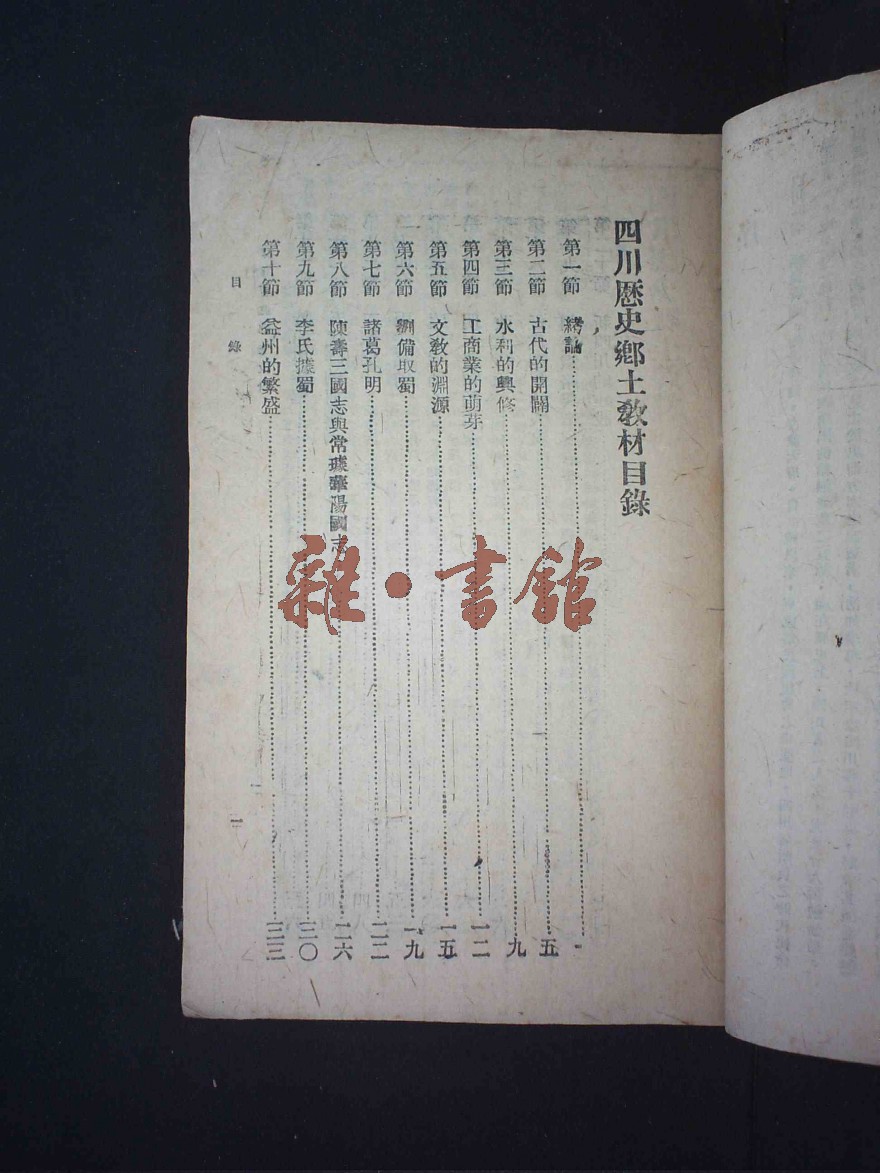 四川歷史鄉土教材目錄
第一節 緒論 一
第二節 古代的開闢 五
第三節 水利的興修 九
第四節 工商業的萌芽 一二
第五節 文教的淵源 一五
第六節 劉備取蜀 一九
第七節 諸葛孔明 二二
第八節 陳壽三國志與常璩華陽國志 二六
第九節 李氏據蜀 三〇
第十節 益州的繁盛 三三
目錄 一
雜·書館